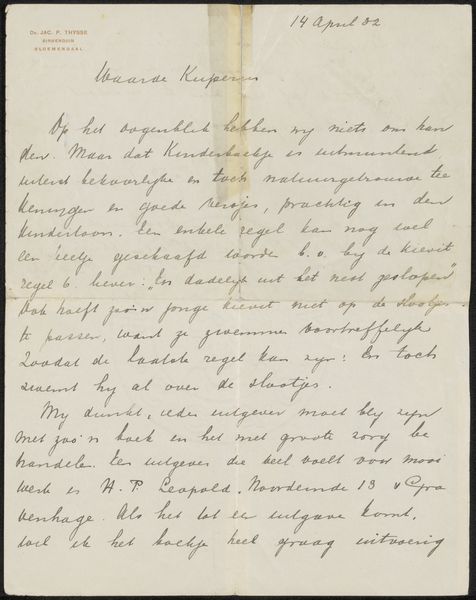 Dr. JAC. P. THYSSE
BINNENDUIN
BLOEMENDAAL
14 April 32
Waarde Kuiperus
Op het oogenblik hebben wy niets om han
den. Maar dat Kinderboekje is uitmuntend
uiterst bekoorlyke en toch natuurgetrouwe tee
keningen en goede versjes, prachtig in den
kindertoon. Een enkele regel kan nog wel
een beetje geschaafd worden b.v. by de kievit
regel 6 liever: "En dadelyk uit het nest geslopen"
Ook hoeft zoo'n jonge kievit niet op de slootjes
te passen, want ze zwemmen voortreffelyk
Zoodat de laatste regel kan zyn: En toch
zwemt hy al over de slootjes.
My dunkt, ieder uitgever moet bly zyn
met zoo'n boek en het met groote zorg be
handelen. Een uitgever die veel voelt voor mooi
werk is H. P. Leopold, Noordeinde 13 's Gra
venhage. Als het tot een uitgave komt,
wil ik het boekje heel graag uitvoerig